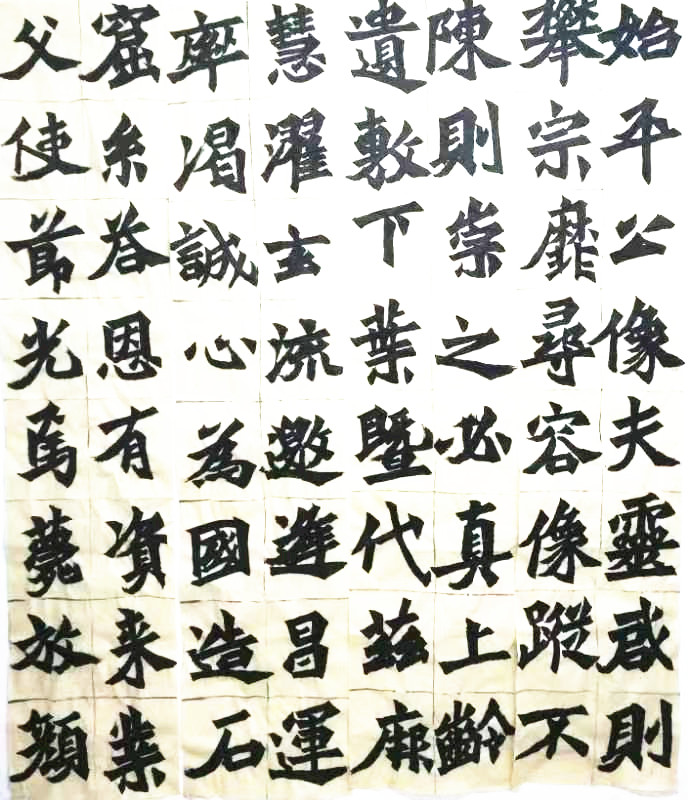 始平公像夫靈咸則
攀宗靡尋容像蹤不
陳則崇之必真上齡
遺敷下葉暨代茲厥
慧濯玄流邀遊昌運
率渴誠心為國造石
窟糸荅恩有資来業
父使莭光焉薨放顏